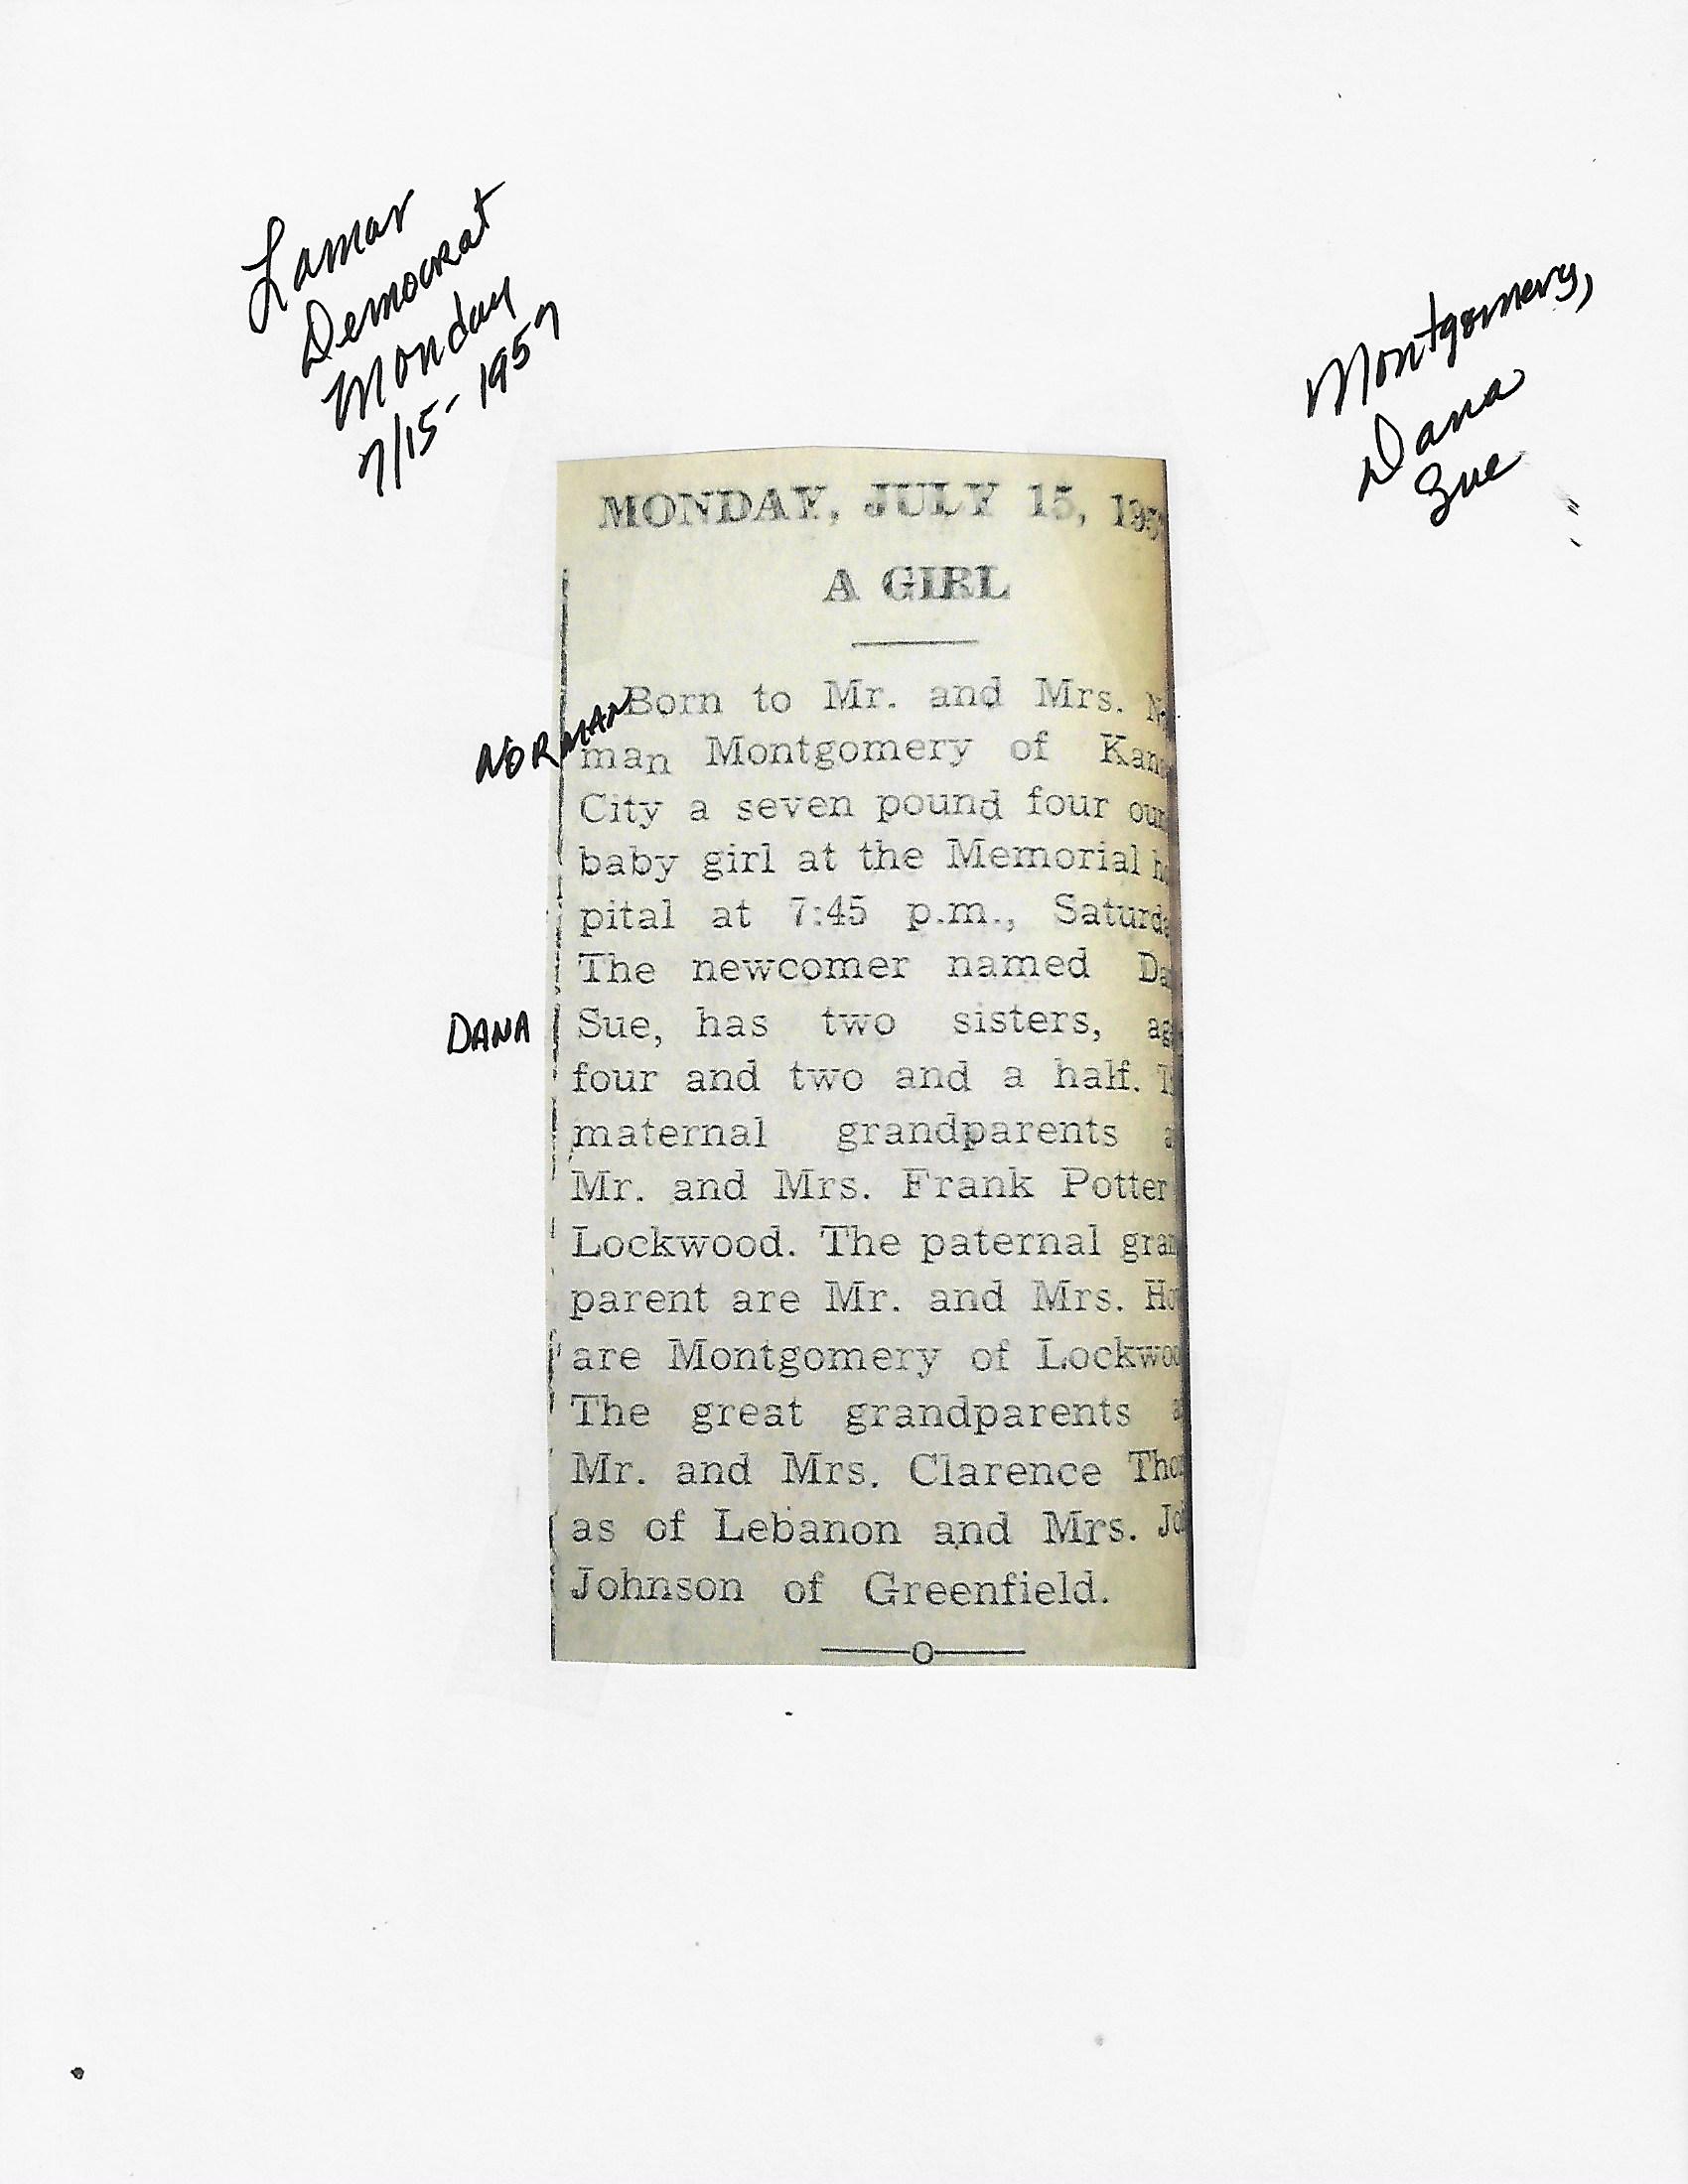 Lamar
Democrat
Monday
7/15-1957
Montgomery,
Dana
Sue
MONDAY, JULY 15, 195
A GIRL
Born to Mr. and Mrs. N
NORMAN
man Montgomery of Kan
City a seven pound four oun
baby girl at the Memorial h
pital at 7:45 p.m., Saturda
The newcomer named Da
DANA
Sue, has two sisters, ag
four and two and a half. T
maternal grandparents a
Mr. and Mrs. Frank Potter
Lockwood. The paternal gran
parent are Mr. and Mrs. Ho
are Montgomery of Lockwoo
The great grandparents a
Mr. and Mrs. Clarence Thom
as of Lebanon and Mrs. Jo
Johnson of Greenfield.